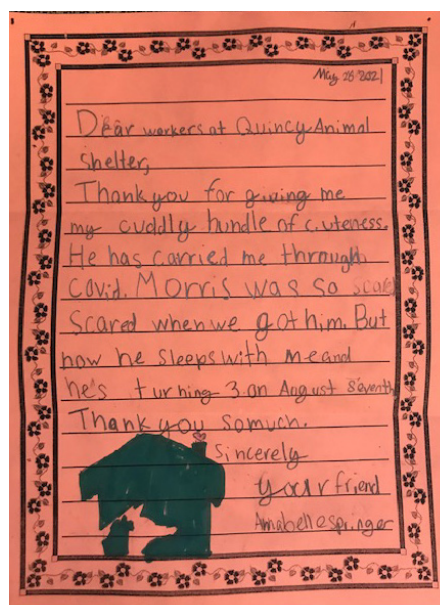 May 26 2021
Dear workers at Quincy Animal
Shelter,
Thank you for giving me
my cuddly hundle of cuteness.
He has carried me through
Covid. Morris was so scared
Scared when we got him. But
now he sleeps with me and
he's turning 3 on August seventh
Thank you so much.
Sincerely
your friend
Annabelle springer